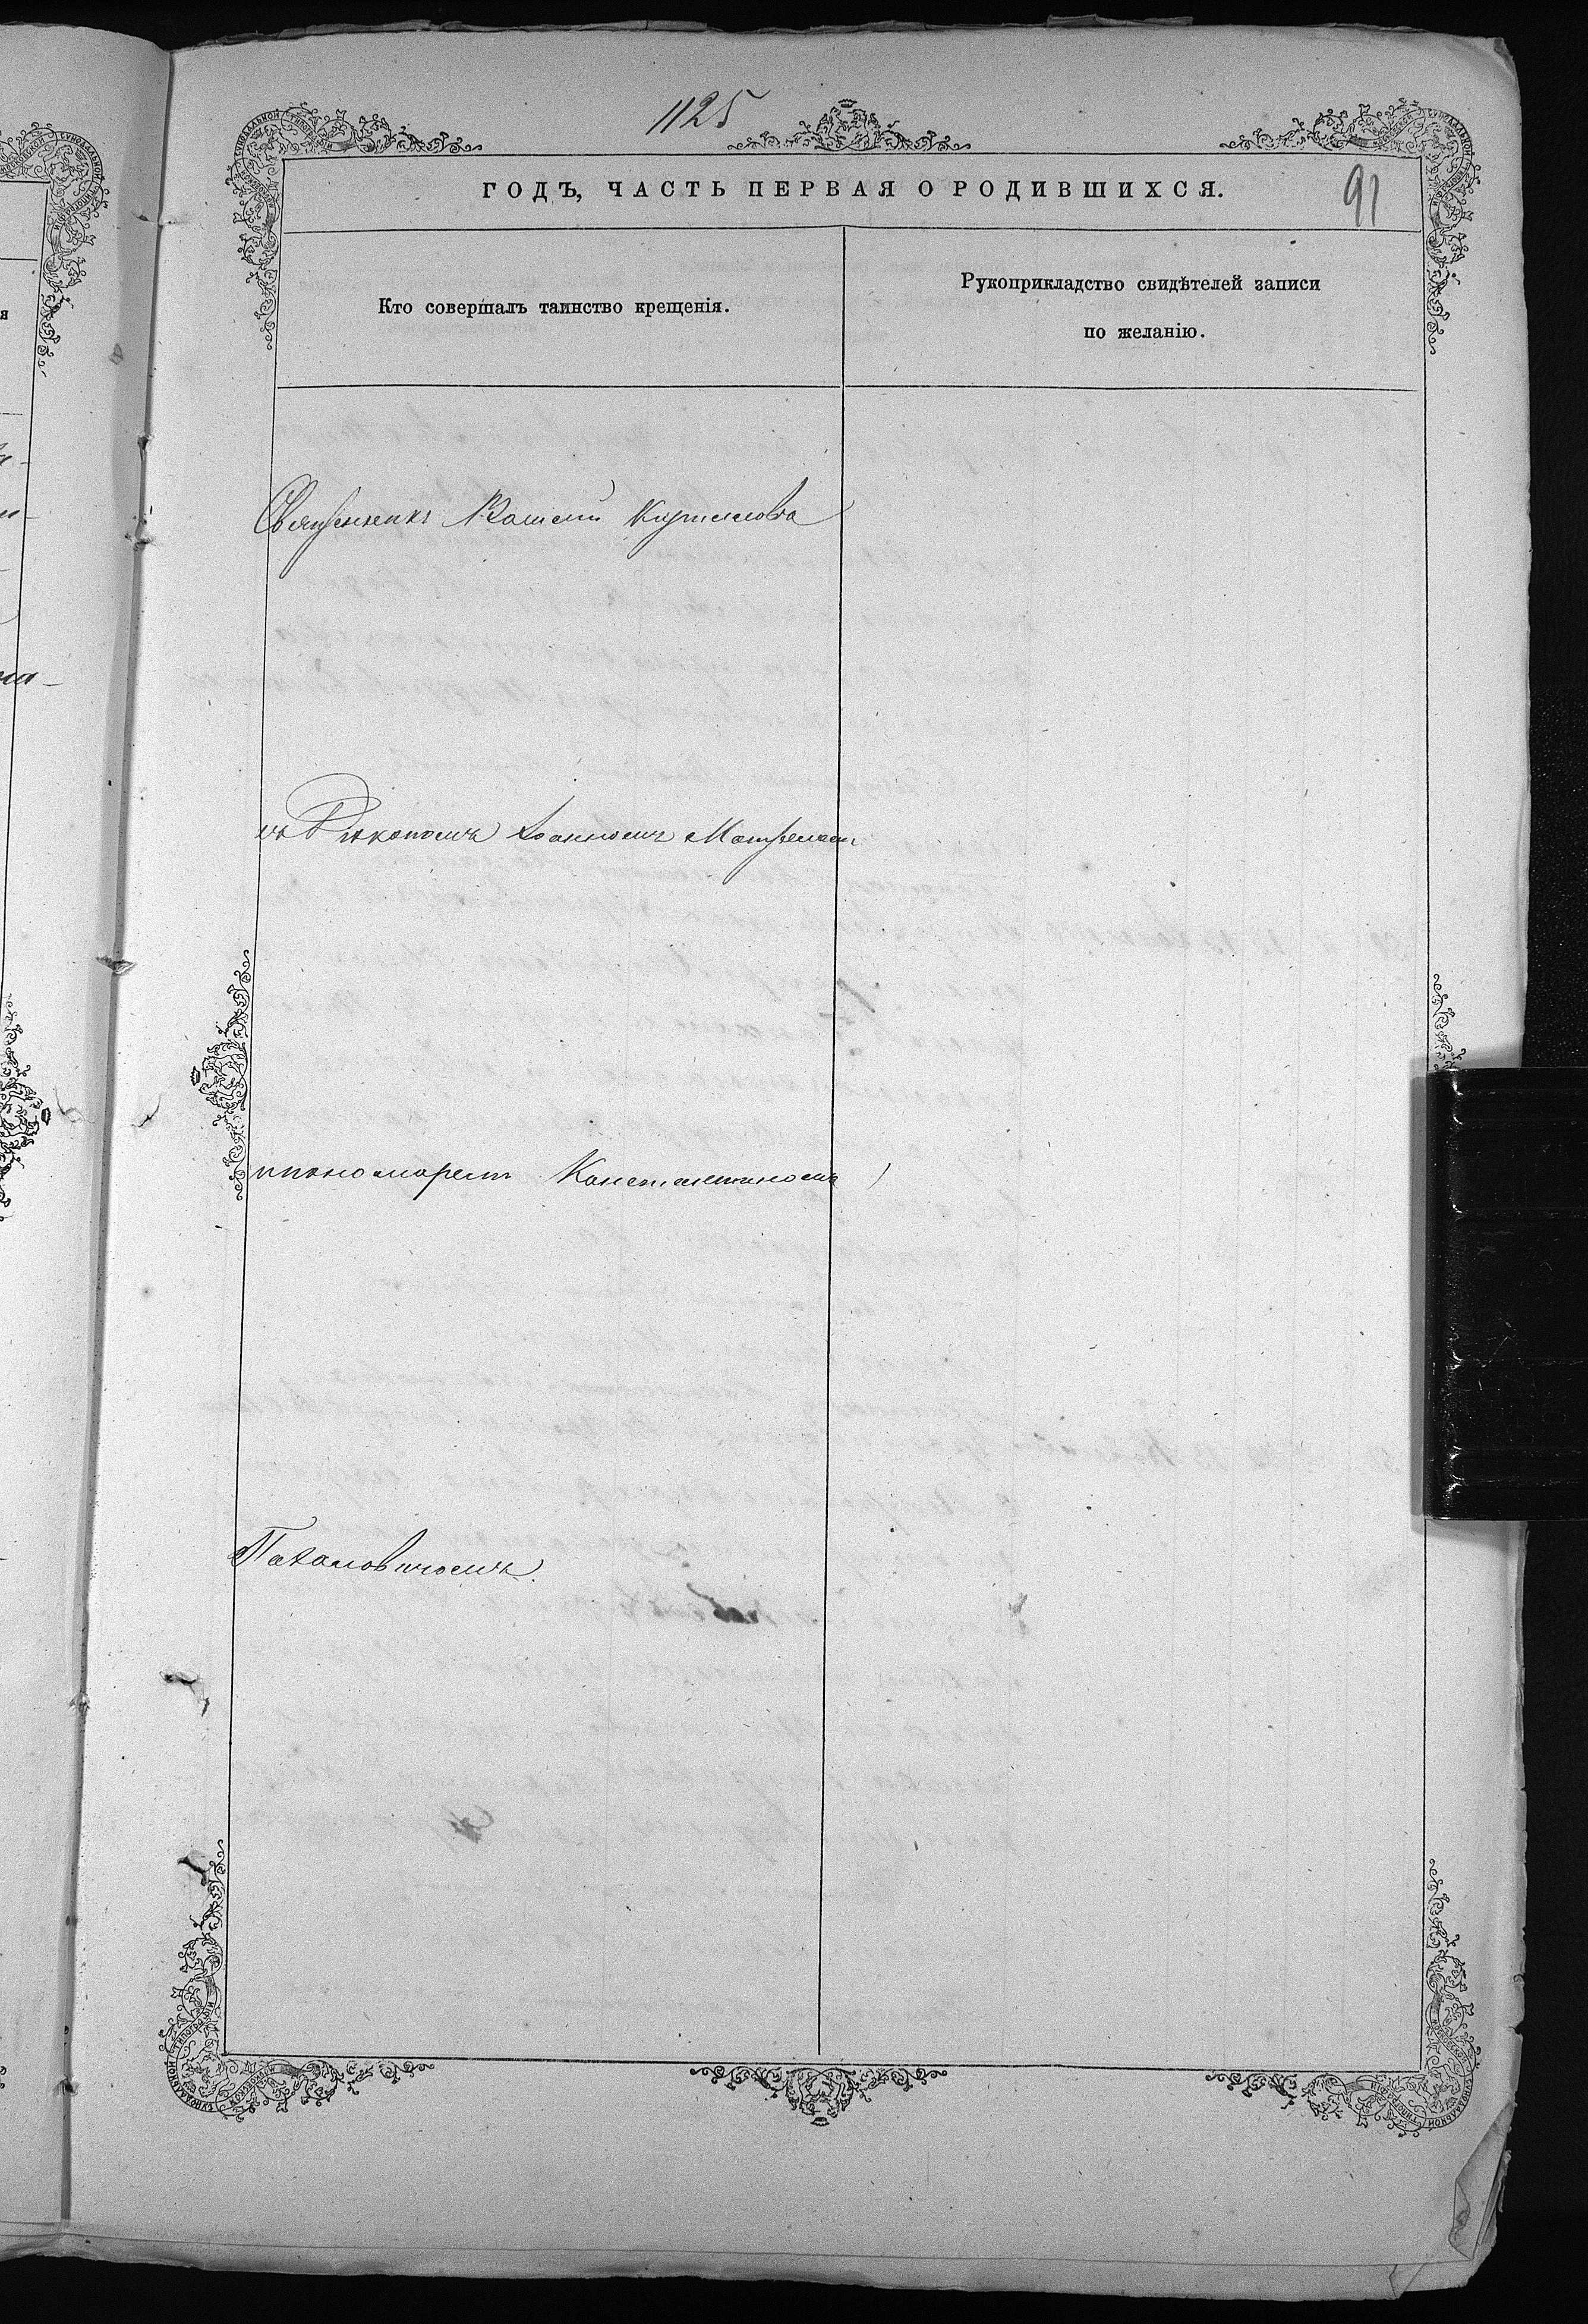 1125
ГОДЪ, ЧАСТЬ ПЕРВАЯ О РОДИВШИХСЯ.
91
Кто совершалъ таинство крещенія.
Рукоприкладство свидѣтелей записи
по желанію.
Священникъ Василій Кириллова
съ Діакономъ Іоанномъ
и пономаремъ Константиномъ